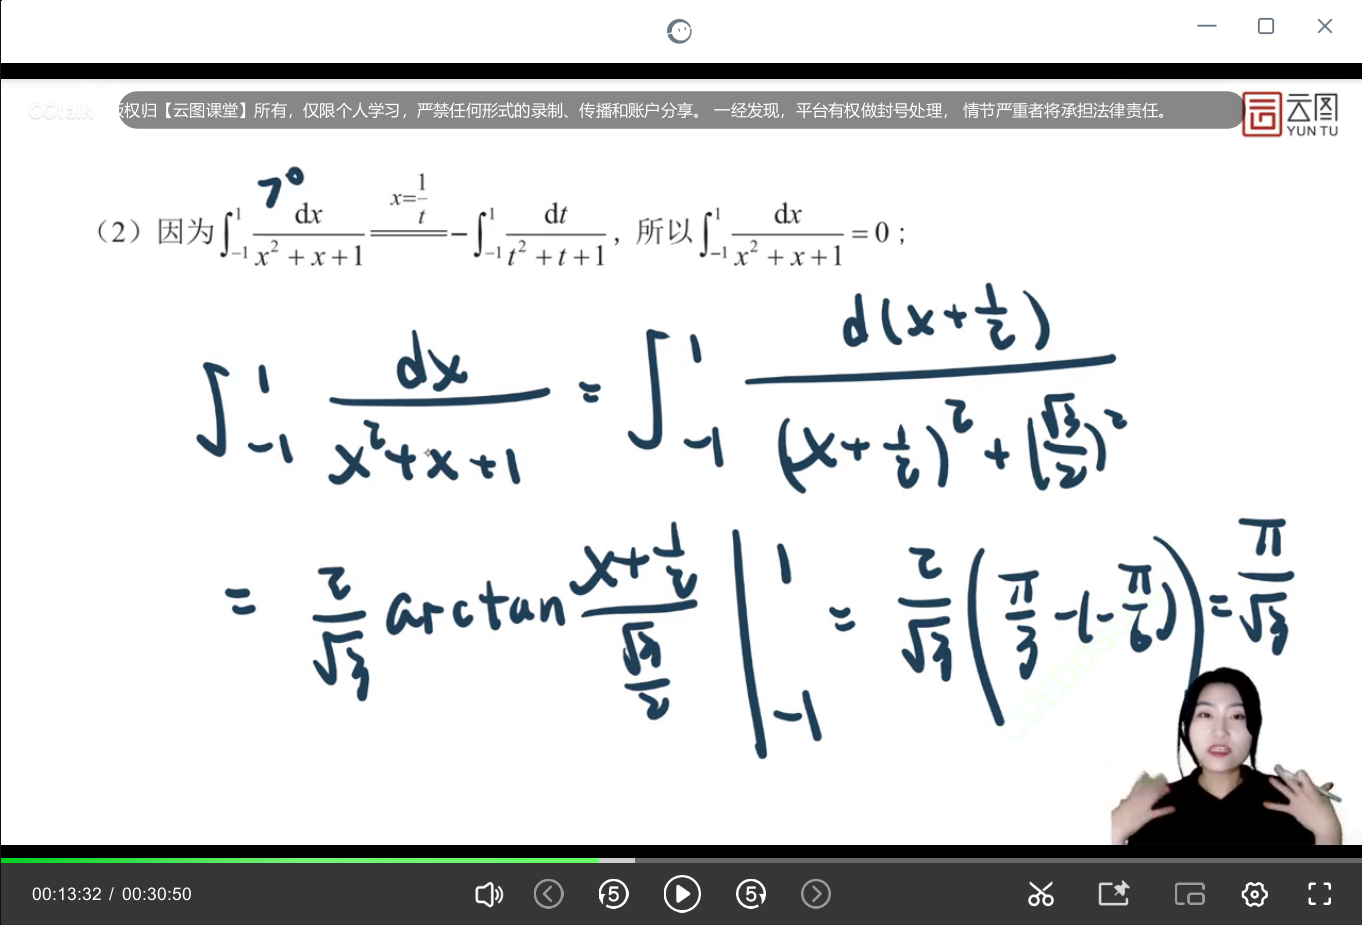 CCtalk
版权归【云图课堂】所有，仅限个人学习，严禁任何形式的录制、传播和账户分享。 一经发现，平台有权做封号处理， 情节严重者将承担法律责任。
云图
YUN TU
>0
（2）因为∫_{-1}^{1} dx/(x²+x+1) =(x=1/t)= -∫_{-1}^{1} dt/(t²+t+1)，所以∫_{-1}^{1} dx/(x²+x+1) = 0；
∫_{-1}^{1} dx/(x²+x+1) = ∫_{-1}^{1} d(x+1/2)/((x+1/2)²+(√3/2)²)
= 2/√3 arctan (x+1/2)/(√3/2) |_{-1}^{1} = 2/√3 (π/3-(-π/6)) = π/√3
00:13:32 / 00:30:50
5
5